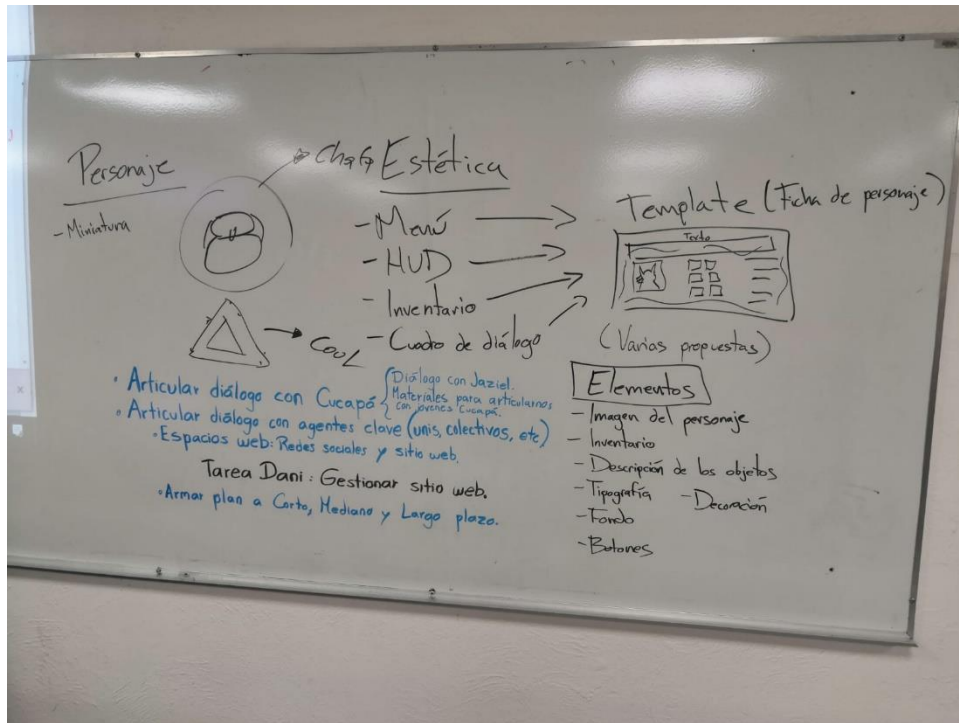 Personaje
- Miniatura
Chafa
Cool
Estética
- Menú
- HUD
- Inventario
- Cuadro de diálogo
Template (Ficha de personaje)
Texto
(Varias propuestas)
Elementos
- Imagen del personaje
- Inventario
- Descripción de los objetos
- Tipografía
- Decoración
- Fondo
- Botones
• Articular diálogo con Cucapá
Diálogo con Jaziel.
Materiales para articularnos
con jóvenes Cucapá.
• Articular diálogo con agentes clave (unis, colectivos, etc)
• Espacios web: Redes sociales y sitio web.
Tarea Dani: Gestionar sitio web.
• Armar plan a Corto, Mediano y Largo plazo.